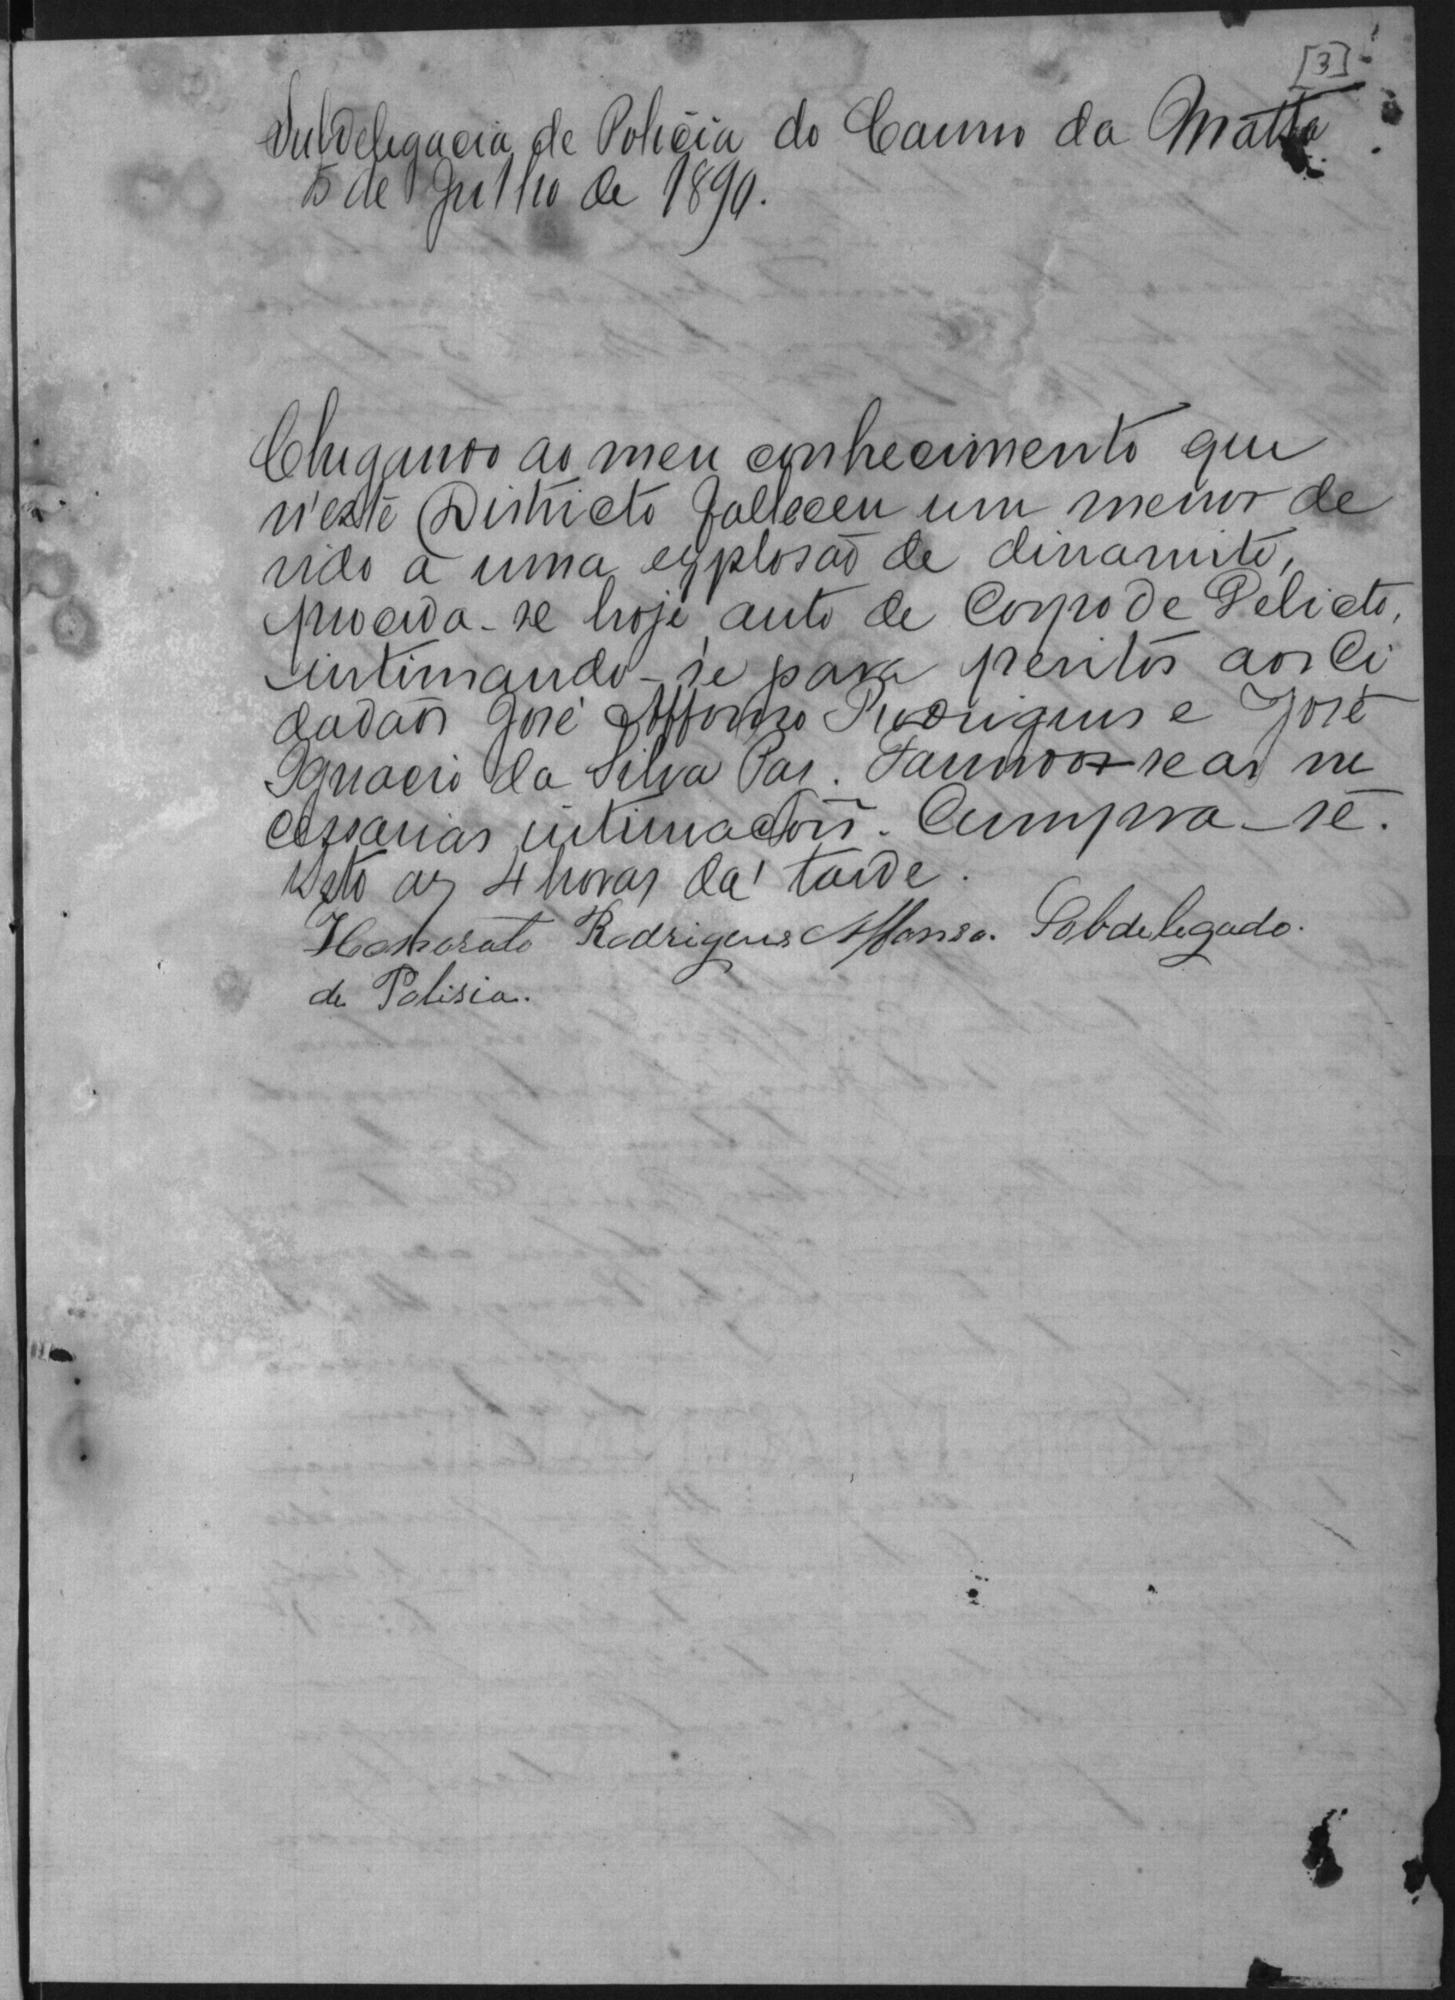 [3]
Subdelegacia de Policia do Carmo da Matta
5 de Julho de 1890.
Chegando ao meu conhecimento que
n'este Districto falleceu um menor de
vido a uma explosão de dinamite,
proceda-se hoje auto de Corpo de Delicto,
intimando-se para peritos aos Ci
dadãos José Affonso Rodrigues e José
Ignacio da Silva Pas. Fazendo-se as ne
cessarias intimações. Cumpra-se.
Isto as 4 horas da tarde.
Honorato Rodrigues Affonso. Sobdelegado.
de Polisia.